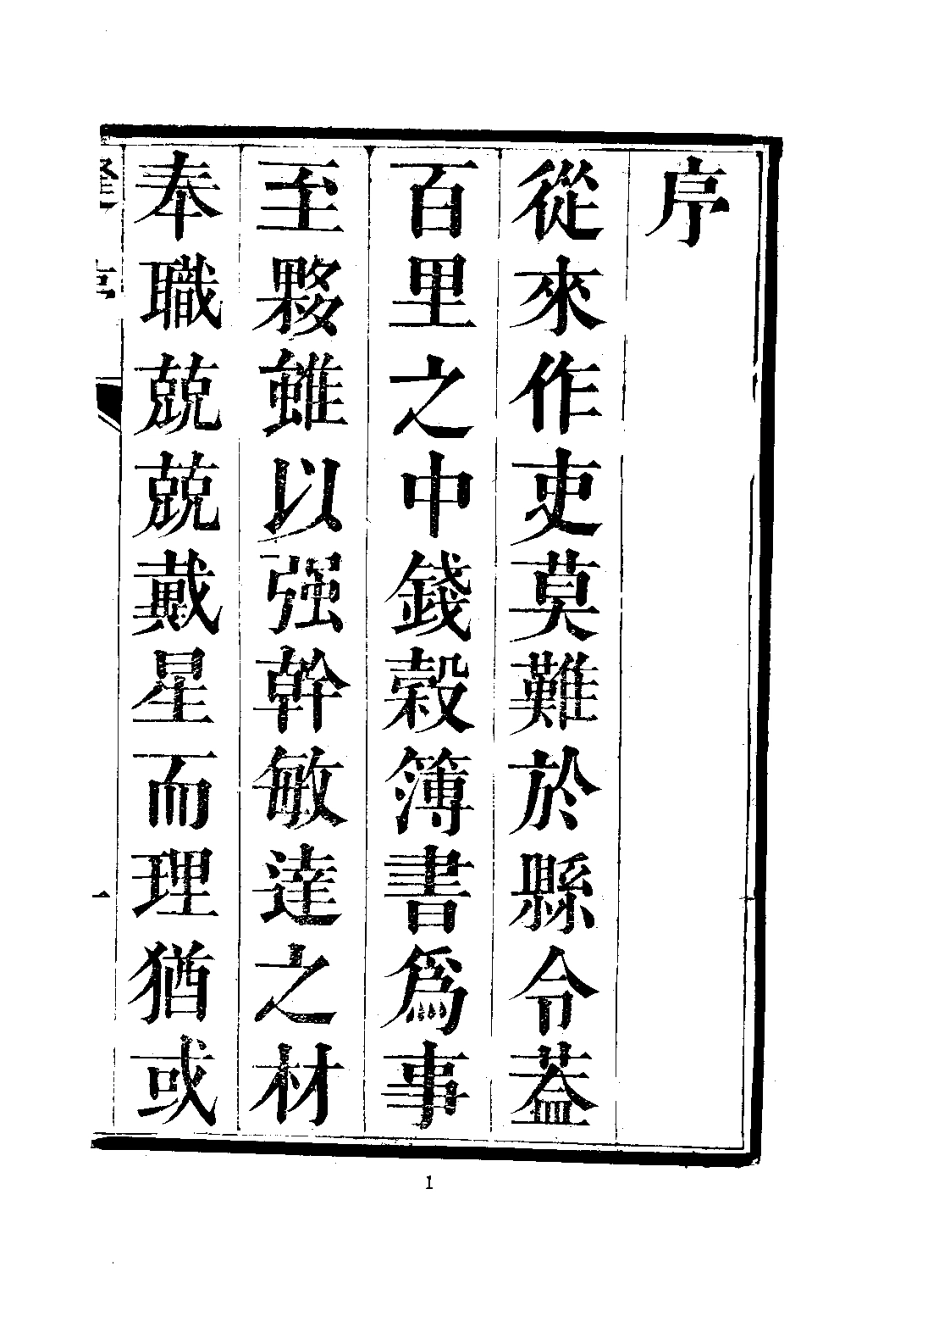 序
從來作吏莫難於縣令葢
百里之中錢榖簿書爲事
至夥雖以强幹敏達之材
奉職兢兢戴星而理猶或
序
一
1